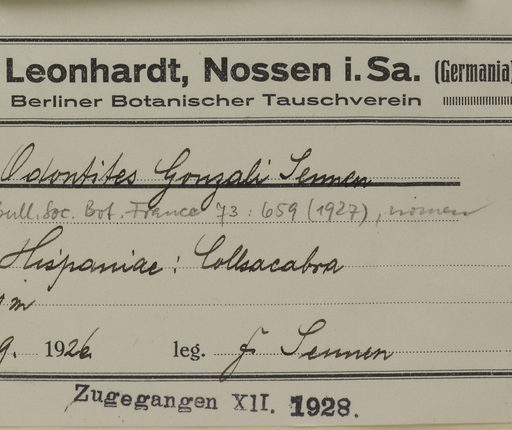 Leonhardt, Nossen i. Sa. (Germania)
Berliner Botanischer Tauschverein
Odontites Gonzali Sennen
Bull. Soc. Bot. France 73 : 659 (1927), nomen
Hispaniae : Collsacabra
m
9. 1926 leg. f. Sennen
Zugegangen XII. 1928.